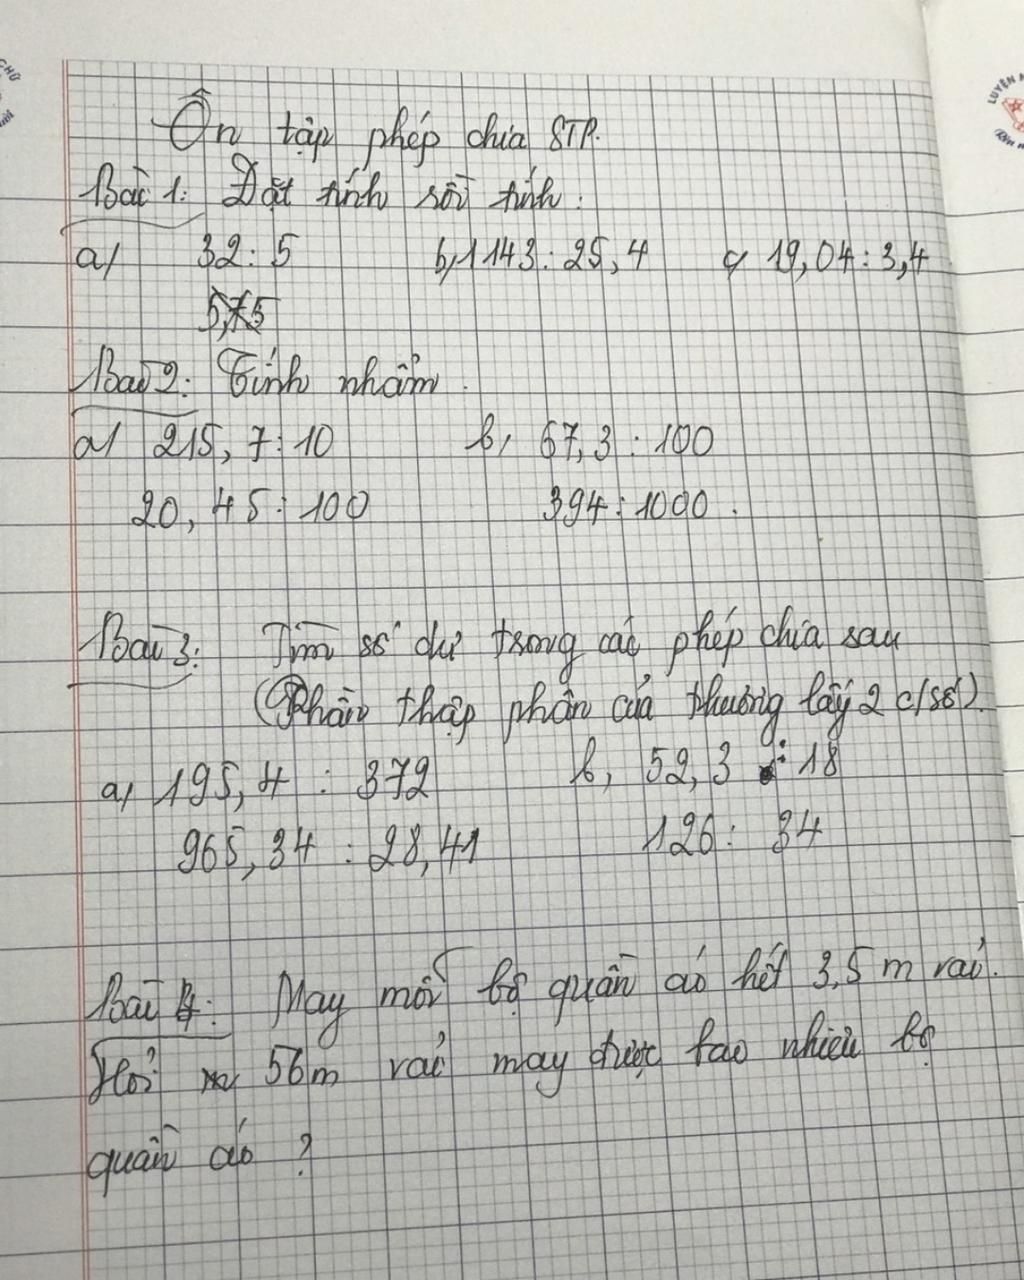 Ôn tập phép chia STP.
Bài 1: Đặt tính rồi tính:
a/ 32:5 b, 1143:25,4 c, 19,04:3,4
5,75
Bài 2: Tính nhẩm.
a/ 215,7:10 b, 67,3:100
20,45:100 394:1000.
Bài 3: Tìm số dư trong các phép chia sau
(Phần thập phân của thương lấy 2 c/số).
a, 195,4 : 372 b, 52,3 : 18
965,34 : 28,41 126: 34
Bài 4: May mỗi bộ quần áo hết 3,5 m vải.
Hỏi 56m vải may được bao nhiêu bộ
quần áo ?
CHỮ
LUYỆN